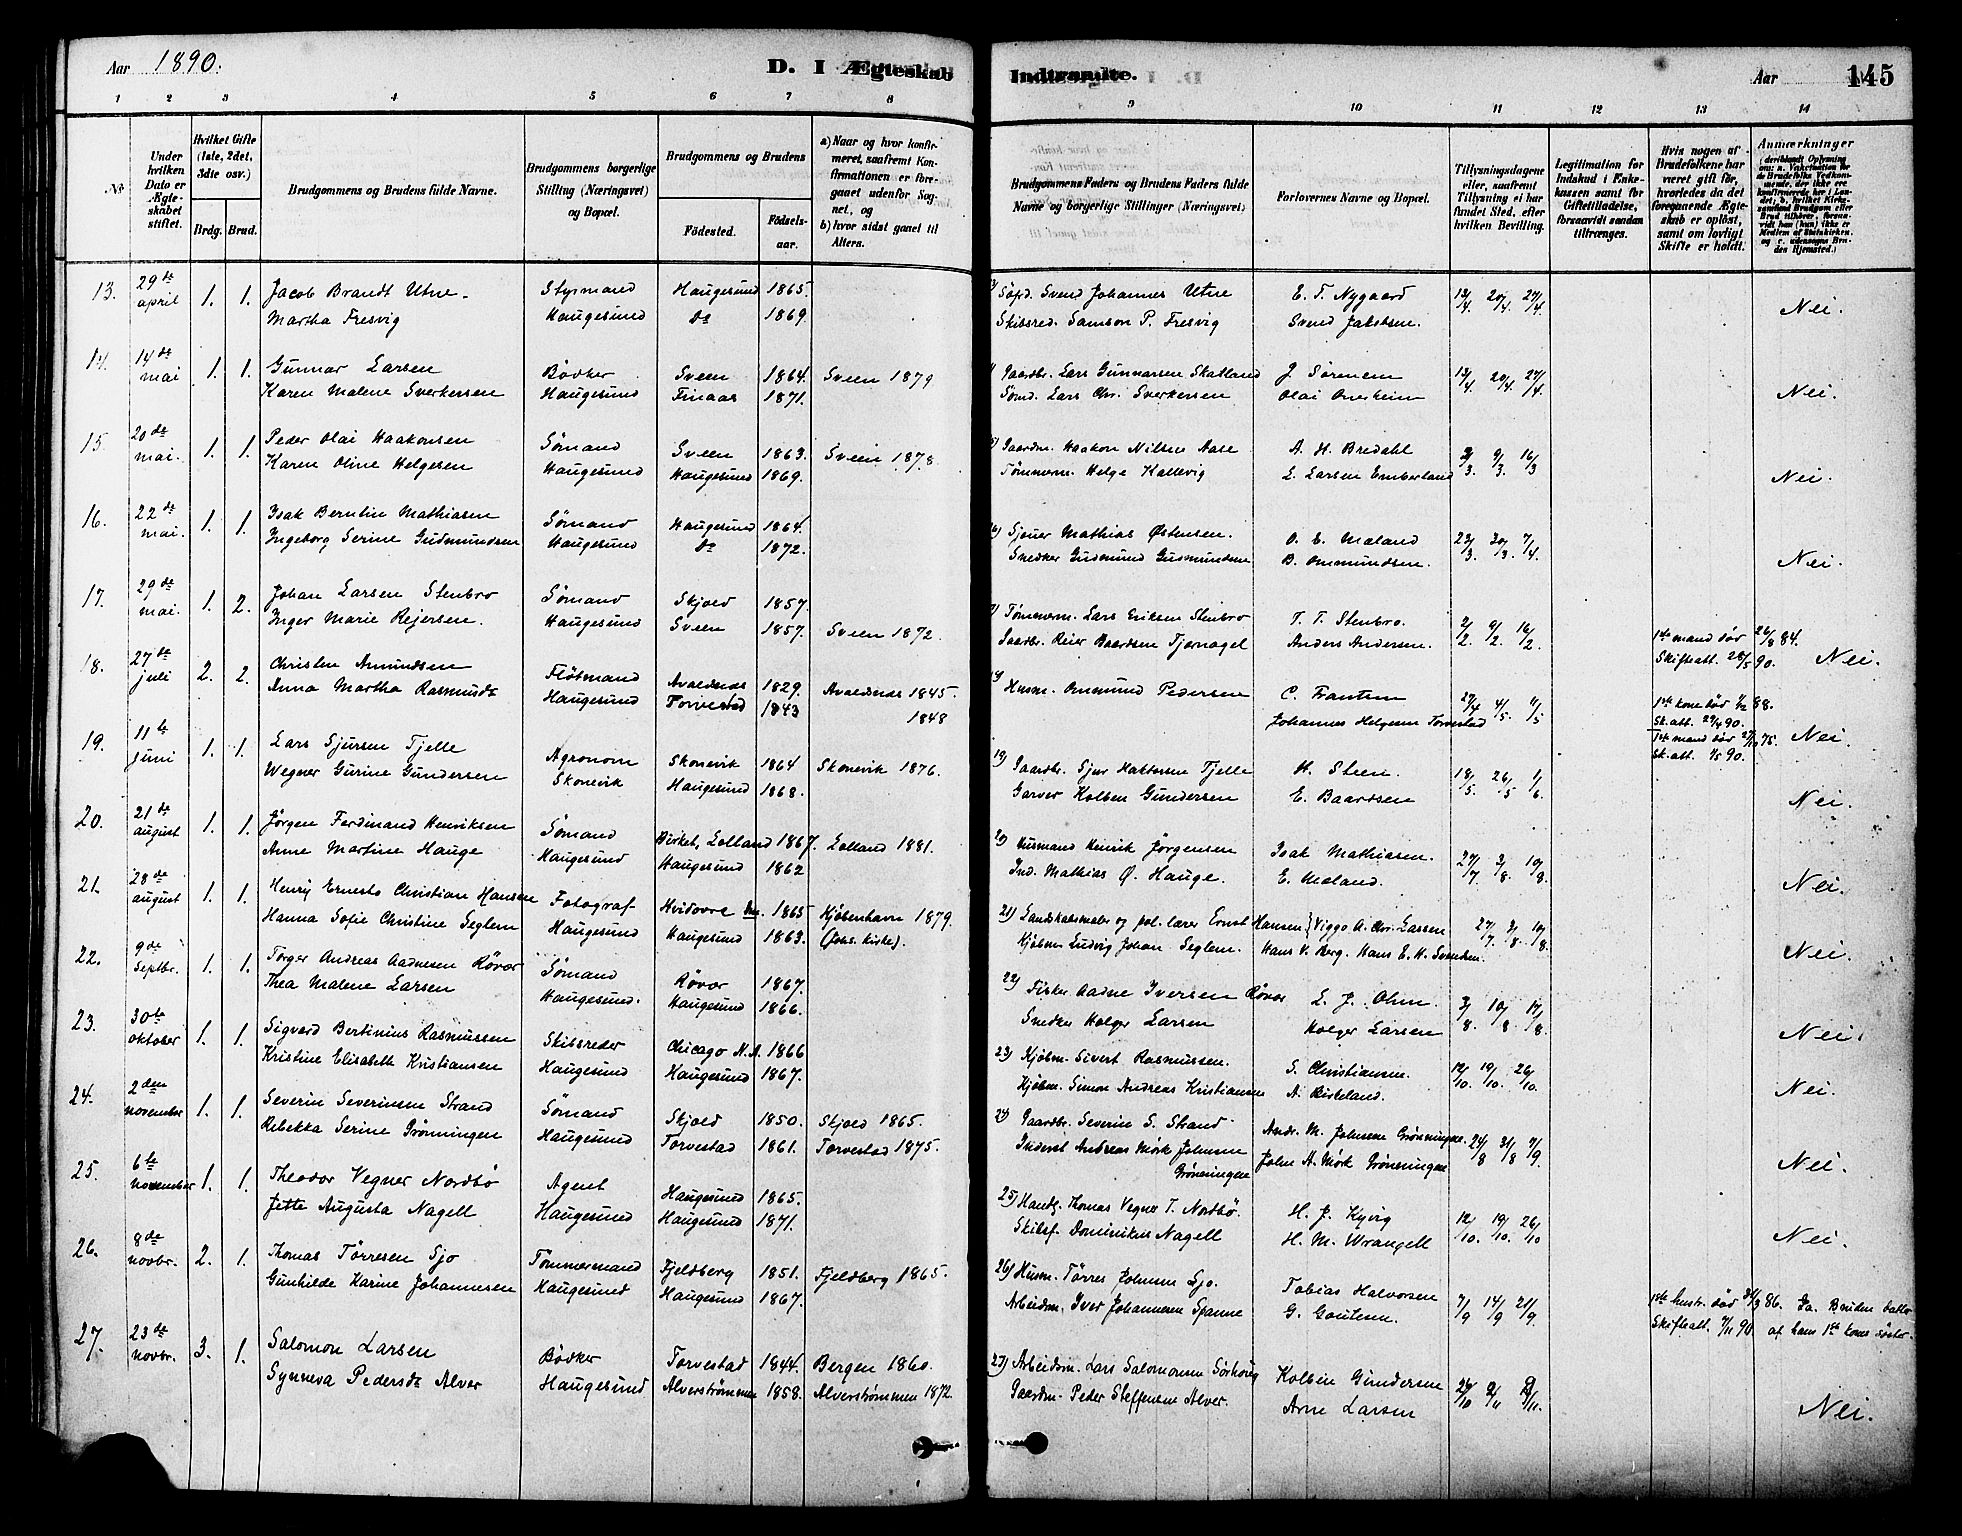 Aar 1890.
D. I Ægteskab
Indtraadte.
Aar
145
1 2 3 4 5 6 7 8 9 10 11 12 13 14
No.
Under hvilken Dato er Ægteskabet stiftet.
Hvilket Gifte (1ste, 2det, 3die osv.)
Brdg. Brud.
Brudgommens og Brudens fulde Navne.
Brudgommens borgerlige Stilling (Næringsvei) og Bopæl.
Brudgommens og Brudens
Fødested.
Fødselsaar.
a) Naar og hvor konfirmeret, saafremt Konfirmationen er foregaaet udenfor Sognet, og
b) hvor sidst gaaet til Alters.
Brudgommens Faders og Brudens Faders fulde Navne og borgerlige Stillinger (Næringsvei)
Forlovernes Navne og Bopæl.
Tillysningsdagene eller, saafremt Tillysning ei har fundet Sted, efter hvilken Bevilling.
Legitimation for Indskud i Enkekassen samt for Giftetilladelse, forsaavidt saadan tiltrænges.
Hvis nogen af Brudefolkene har været gift før, hvorledes da det foregaaende Ægteskab er opløst, samt om lovligt Skifte er holdt.
Anmærkninger
13. 29de april 1. 1. Jacob Brandt Utne. Styrmand Haugesund 1865. Søfd. Svend Johannes Utne E. T. Nygaard 13/4 20/4 27/4 Nei.
Martha Fresvig Haugesund do 1869. Skibsred. Samson P. Fresvig Svend Jakobsen.
14. 14de mai 1. 1. Gunnar Larsen Bødker Sveen 1864. Sveen 1879 Gaardbr. Lars Gunnarsen Skatland J. Sörensen 13/4 20/4 27/4 Nei.
Karen Malene Sverkersen Haugesund Finaas 1871. Sømd. Lars Chr. Sverkersen Olai Onesheim
15. 20de mai. 1. 1. Peder Olai Haakonsen Sømand Sveen 1863. Sveen 1878. Gaardm. Haakon Nilsen Aase A. H. Bredahl 2/3. 9/3. 16/3 Nei.
Karen Oline Helgesen Haugesund Haugesund 1869. Tømmerm. Helge Kallevig L. Larsen Emberland
16. 22de mai. 1. 1. Isak Berntin Mathiasen Sømand Haugesund 1864. Sjouer Mathias Østensen. O. E. Mæland 23/3. 30/3. 7/4 Nei.
Ingeborg Serine Gudmundsen Haugesund do 1872. Snedker Gudmund Gudmundsen B. Ommundsen.
17. 29de mai. 1. 2. Johan Larsen Stenbro Sømand Skjold 1857. Tømmerm. Lars Eriksen Stenbro T. T. Stenbro. 2/2. 9/2. 16/2 1ste mand død 26/8 84.
Inger Marie Rejersen. Haugesund Sveen 1857. Sveen 1872. Gaardbr. Reier Baardsen Tjernagel Anders Andersen. Skifteatt. 28/5 90. Nei.
18. 27de juli 2. 2. Christen Amundsen Fløtmand Avaldsnes 1829. Avaldsnes 1845. Husm. Ommund Pedersen C. Frantsen 27/4 4/5. 11/5 1ste kone død 1/12 88.
Anna Martha Rasmundsdr Haugesund Torvestad 1843 1848 Johannes Helgesen Torvestad Sk.att. 29/4 90.
1ste mand død 27/10 75.
Sk.att. 1/5 90. Nei.
19. 11te juni 1. 1. Lars Sjursen Tjelle Agronom Skonevik 1864 Skonevik 1876. 19) Gaardbr. Sjur Haktorsen Tjelle H. Steen. 18/5. 26/5 1/6 Nei.
Wegner Gurine Gundersen Skonevik Haugesund 1868. Garver Kolben Gundersen E. Baardsen
20. 21de august 1. 1. Jörgen Ferdinand Henriksen Sømand Birket, Lolland 1867. Lolland 1881. 20) Husmand Henrik Jörgensen Isak Mathiasen. 27/7 3/8. 10/8. Nei.
Anne Martine Hauge Haugesund Haugesund 1862 Ind. Mathias Ø. Hauge. E. Mæland.
21. 28de august 1. 1. Henry Ernesto Christian Hansen Fotograf Hvidovre 1865 Kjøbenhavn 1879. 21) Landskabsmaler og pol. lærer Ernst Hansen Viggo A. Chr. Larsen 27/7. 3/8. 10/8. Nei.
Hanna Sofie Christine Seglem Haugesund Haugesund 1863. (Johs. Kirke). Kjøbm. Ludvig Johan Seglem. Hans V. Berg. Hans E. H. Svendsen.
22. 9de Septbr. 1. 1. Törger Andreas Aadnesen Røvær Sømand Røvær 1867. 22) Fisker Aadne Iversen Røvær L. J. Ohm. 3/8. 10/8 17/8. Nei.
Thea Malene Larsen Haugesund. Haugesund 1866. Snedker Holger Larsen Holger Larsen
23. 30te oktober 1. 1. Sigvard Bertinius Rasmussen Skibsreder Chicago N.A. 1866 23) Kjøbm. Sivert Rasmussen. S. Christiansen. 12/10 19/10. 26/10. Nei.
Kristine Elisabeth Kristiansen Haugesund Haugesund 1867. Kjøbm. Simon Andreas Kristiansen A. Birkeland.
24. 2den november 1. 1. Severin Severinsen Strand Sømand Skjold 1850. Skjold 1865. 24) Gaardbr. Severin S. Strand Andr. M. Johnsen Grønningen. 24/8 31/8 7/9 Nei.
Rebekka Serine Grønningen Haugesund Torvestad 1861. Torvestad 1875. Inderst Andreas Mørk Johnsen Grønningen John A. Mørk Grønningen
25. 6te november 1. 1. Theodor Vegner Nordbö Agent Haugesund 1865. 25) Handl. Thomas Vegner T. Nordbö. H. J. Kyvig 12/10. 19/10. 26/10 Nei.
Jette Augusta Nagell Haugesund Haugesund 1871. Skibsf. Dominikus Nagell H. M. Wrangell
26. 8de novbr. 2. 1. Thomas Törresen Sjo Tømmermand Fjeldberg 1851. Fjeldberg 1865. 26) Husm. Tørres Johnsen Sjo. Tobias Halvorsen 7/9 14/9 21/9. 1ste hustr. död 31/3 86. Ja. Bruden datter
Gunhilde Karine Johannesen Haugesund Haugesund 1867. Arbeidsm. Iver Johannesen Spanne G. Goutesen. Skifteatt. 7/11 90. af hans 1ste kones søster.
27. 23de novbr. 3. 1. Salomon Larsen Bødker Torvestad 1844. Bergen 1860. 27) Arbeidsm. Lars Salomonsen Sörhoug Kolbein Gundersen 26/10 2/11 9/11. Nei.
Synneva Pedersdr Alver Haugesund Alverstrømmen 1858. Alverstrømmen 1872. Gaardm. Peder Steffensen Alver. Arne Larsen